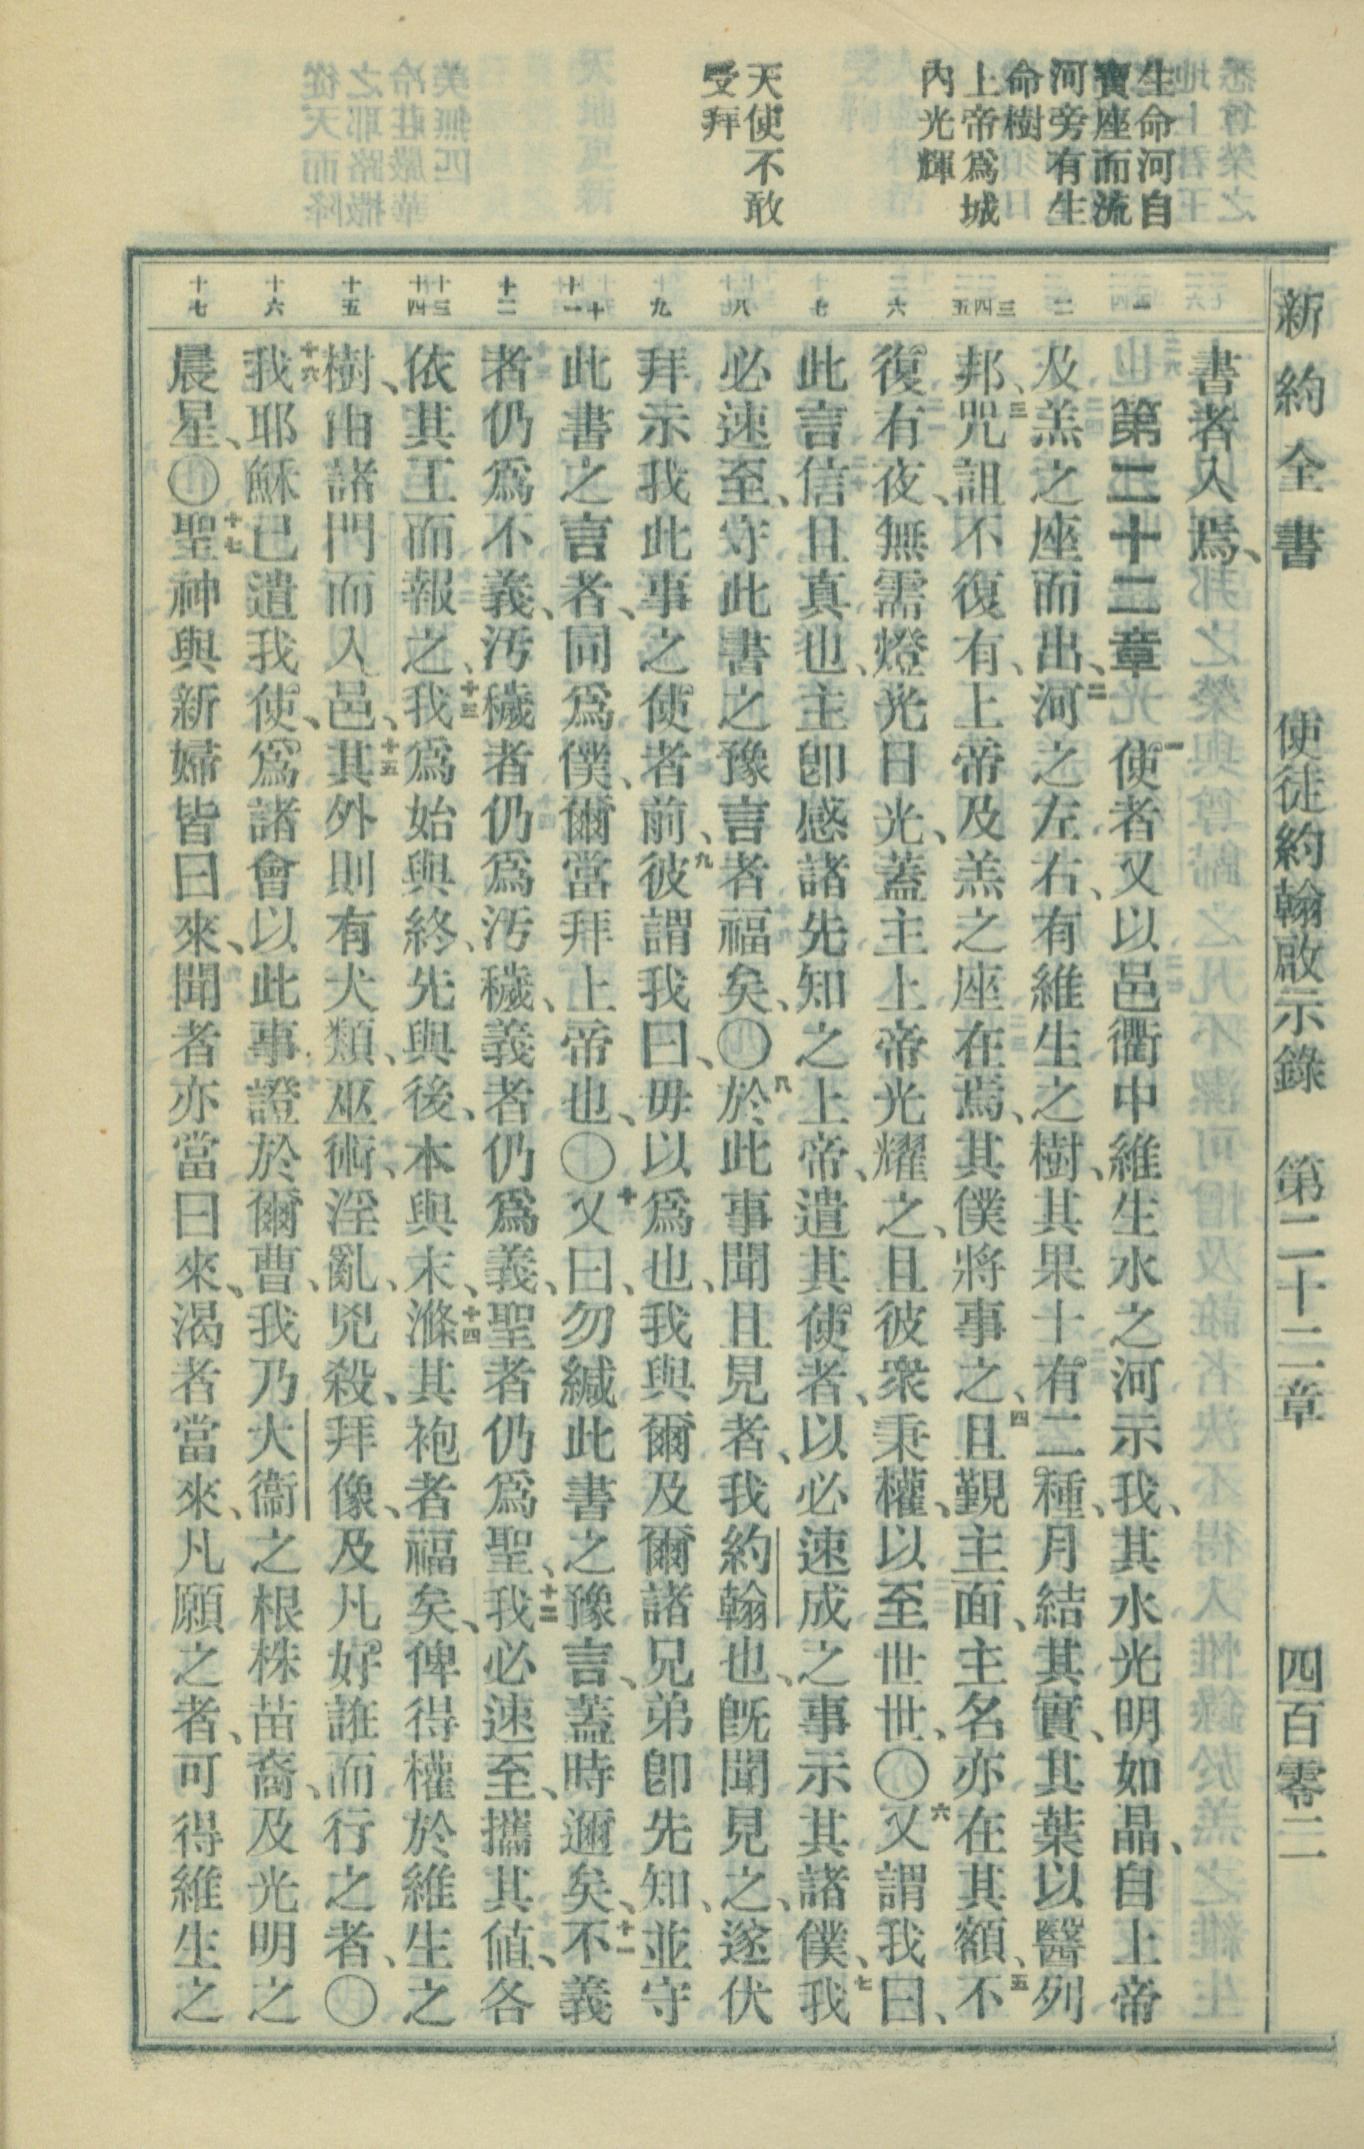 新約全書　使徒約翰啟示錄　第二十二章　四百零二
生命河自
寶座而流
河旁有生
命樹
上帝爲城
內光輝
天使不敢
受拜
一
二
三四五
六
七
八
九
十十一
十二
十三十四
十五
十六
十七
書者入焉、
第二十二章　一使者又以邑衢中維生水之河示我、其水光明如晶、自上帝
及羔之座而出、二河之左右、有維生之樹、其果十有二種、月結其實、其葉以醫列
邦、三咒詛不復有、上帝及羔之座在焉、其僕將事之、四且覲主面、主名亦在其額、五不
復有夜、無需燈光日光、蓋主上帝光耀之、且彼衆秉權、以至世世、〇六又謂我曰、
此言信且真也、主卽感諸先知之上帝、遣其使者、以必速成之事示其諸僕、七我
必速至、守此書之豫言者福矣、〇八於此事聞且見者、我約翰也、旣聞見之、遂伏
拜示我此事之使者前、九彼謂我曰、毋以爲也、我與爾及爾諸兄弟卽先知、並守
此書之言者、同爲僕、爾當拜上帝也、〇十又曰、勿緘此書之豫言、蓋時邇矣、十一不義
者仍爲不義、汚穢者仍爲汚穢、義者仍爲義、聖者仍爲聖、十二我必速至、攜其値、各
依其工而報之、十三我爲始與終、先與後、本與末、十四滌其袍者福矣、俾得權於維生之
樹、由諸門而入邑、十五其外則有犬類、巫術、淫亂、兇殺、拜像、及凡好誑而行之者、〇
十六我耶穌已遣我使、爲諸會以此事證於爾曹、我乃大衞之根株苗裔、及光明之
晨星、〇十七聖神與新婦皆曰來、聞者亦當曰來、渴者當來、凡願之者、可得維生之